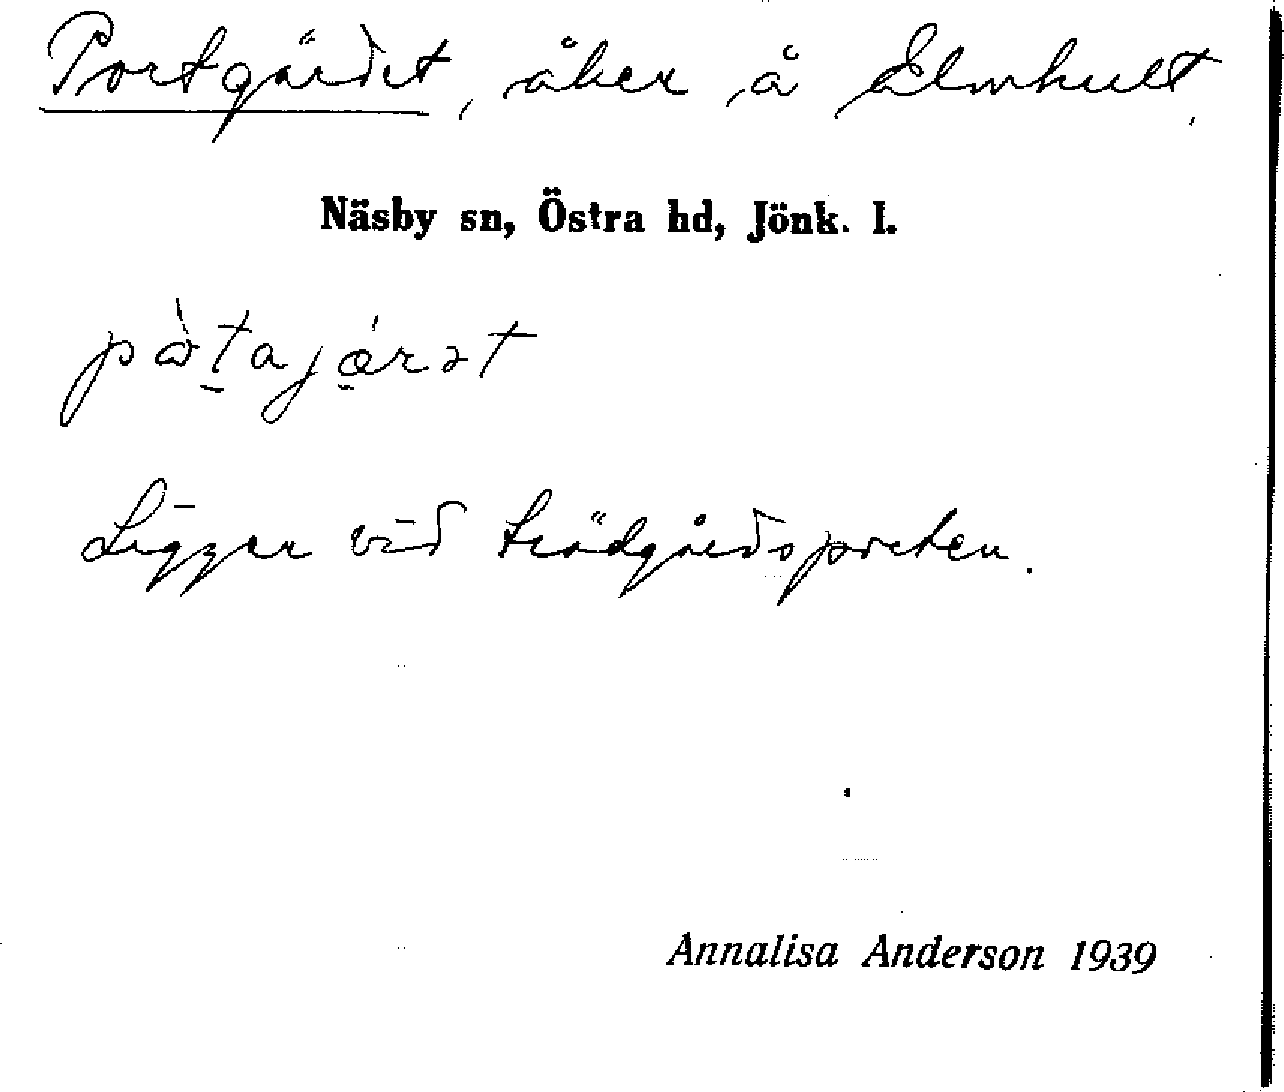 Portgärdet, åker å Älmhult.
Näsby sn, Östra hd, Jönk. l.
Ligger vid trädgårdsporten.
Annalisa Anderson 1939